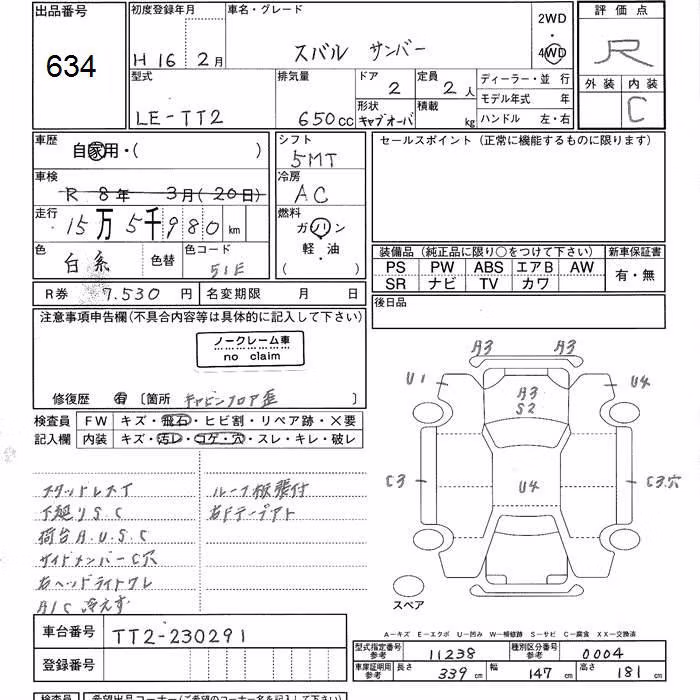 出品番号 初度登録年月 車名・グレード 2WD 評価点
634 H 16 2月 スバル サンバー 4WD R
型式 排気量 ドア 定員 ディーラー・並行 外装 内装
2 2人 モデル年式 年 C
LE-TT2 650cc 形状 積載 ハンドル 左・右
キャブオーバ kg
車歴 シフト セールスポイント(正常に機能するものに限ります)
自家用・( ) 5MT
車検 冷房
R 8年 3月(20日) AC
走行 燃料
15万5千980km ガソリン
軽・油
色 色替 色コード ( ) 装備品(純正品に限り○をつけて下さい) 新車保証書
白系 51E PS PW ABS エアB AW 有・無
SR ナビ TV カワ
R券 7,530円 名変期限 月 日 後日品
注意事項申告欄(不具合内容等は具体的に記入して下さい)
ノークレーム車
no claim
修復歴 有 〔箇所 キャビンフロア歪 〕
検査員 FW キズ・飛石・ヒビ割・リペア跡・X要
記入欄 内装 キズ・汚レ・コゲ・穴・スレ・キレ・破レ
A3 A3
U1 A3 U4
S2
C3 U4 C3.穴
スペア
スタッドレスT ルーフ板張付
下廻りS.C 右Fテープアト
荷台A.U.S.C
サイドメンバーC穴
右ヘッドライトワレ
A/C 冷えず
A-キズ E-エクボ U-凹み W-補修跡 S-サビ C-腐食 XX-交換済
車台番号 TT2-230291
登録番号
型式指定番号 参考 11238 種別区分番号 参考 0004
車庫証明用 参考 長さ 339cm 幅 147cm 高さ 181cm
検査員 希望出品コーナー(ご希望のコーナー名を記入して下さい)